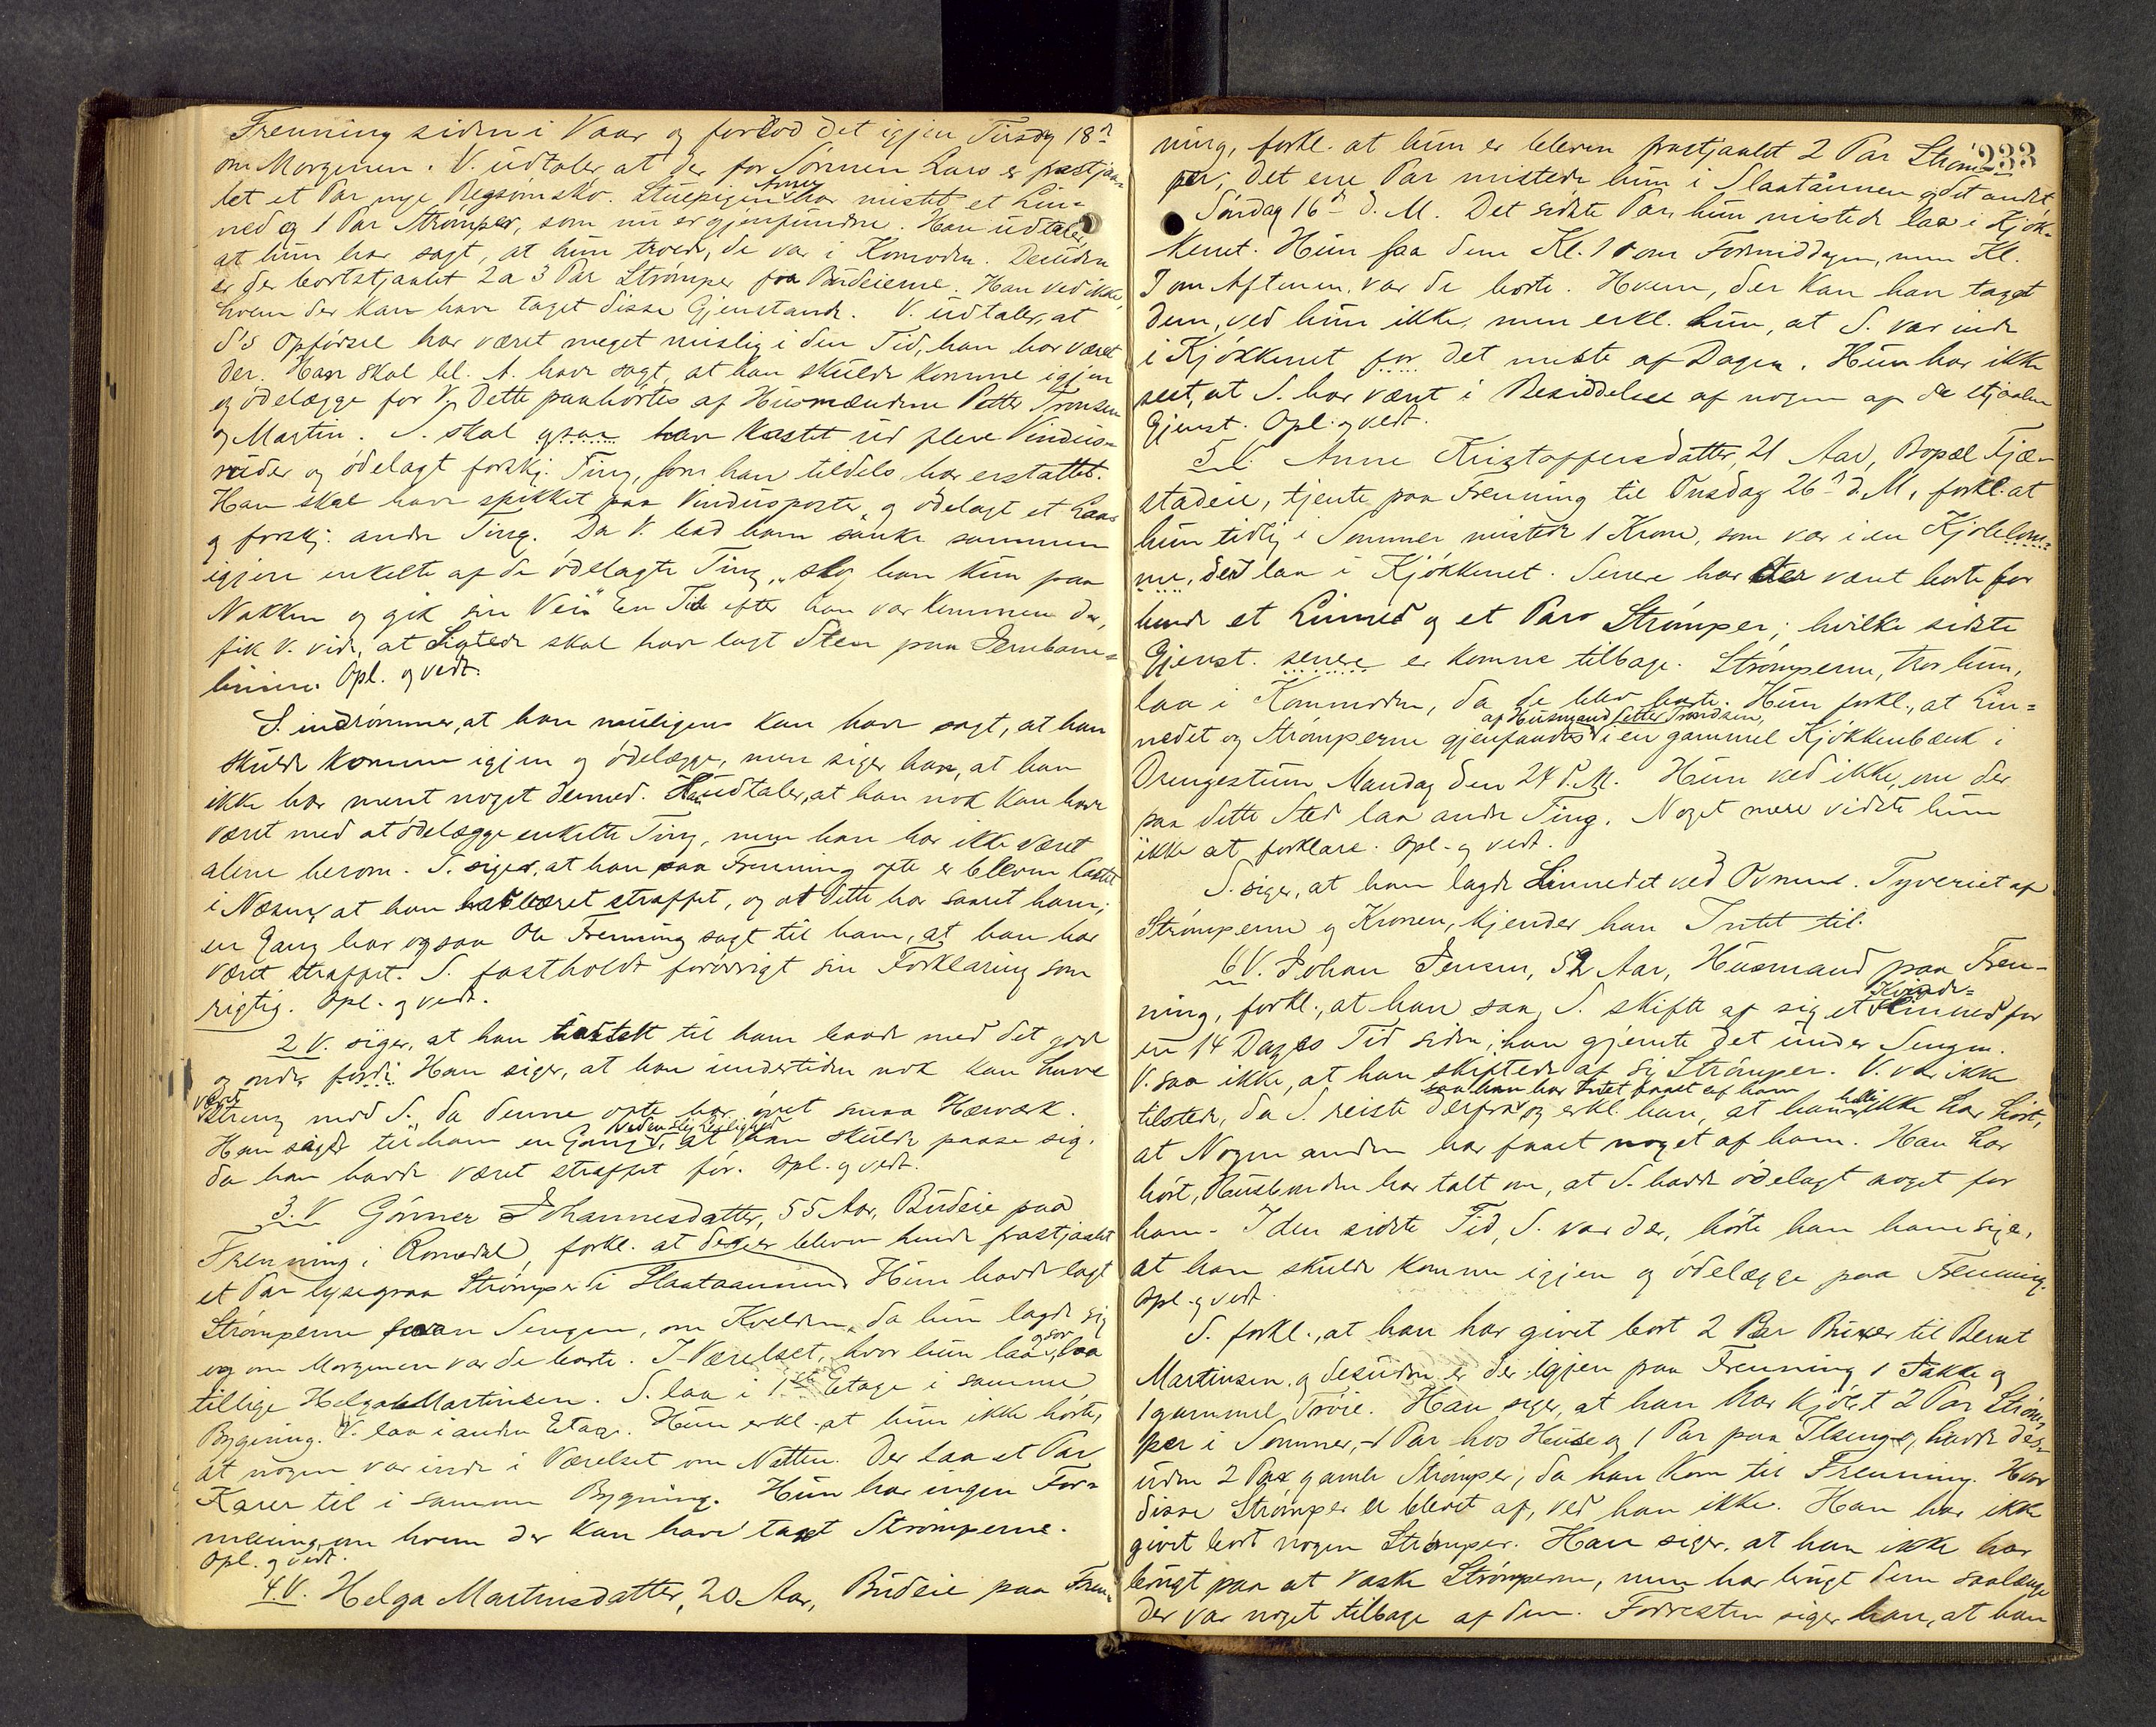 Frenning siden i Vaar og forlod det igjen Tirsdag 18d
om Morgenen. V. udtaler at der for Sønnen Lars er frastjaa-
let et Par nye Regsomsko. Stuepigen Anne har mistet et Lin-
ned og 1 Par Strømper, som nu er gjenfundne. Han udtaler,
at hun har sagt, at hun troede, de var i Komoden. Desuden
er der bortstjaalet 2 a 3 Par Strømper fra Budeierne. Han ved ikke,
hvem der kan have taget disse Gjenstande. V. udtaler, at
S's Opførsel har været meget mislig i den Tid, han har været
der. Han skal bl. A. have sagt, at han skulde komme igjen
og ødelægge for V. Dette paahørtes af Husmændene Petter Tronsen
og Martin. S. skal have kastet ud flere Vindus-
ruder og ødelagt forskj. Ting, som han tildels har erstattet.
Han skal have spikket paa Vindusposter og ødelagt et Laas
og forskj. andre Ting. Da V. bad ham sanke sammen
igjen enkelte af de ødelagte Ting, "slog han kun paa
Nakken og gik sin Vei." En Tid efter han var kommen der,
fik V. vide, at Sigtede skal have lagt Sten paa Jernbane-
linien. Opl. og vedt.
S. indrømmer, at han muligens kan have sagt, at han
skulde komme igjen og ødelægge, men siger han, at han
ikke har ment noget dermed. Han udtaler, at han nok kan have
været med at ødelægge enkelte Ting, men han har ikke været
alene herom. S. siger, at han paa Frenning ofte er bleven kastet
i Næsen, at han har været straffet, og at dette har saaret ham;
en Gang har ogsaa Ole Frenning sagt til ham, at han har
været straffet. S. fastholdt forøvrigt sin Forklaring som
rigtig. Opl. og vedt.
2 V. siger, at han har talt til ham baade med det gode
og onde fordi Han siger, at han undertiden nok kan have
været streng mod S., da denne ofte har øvet smaa Hærværk.
Han sagde til ham en Gang ved en slig Leilighed, at han skulde passe sig,
da han havde været straffet før. Opl. og vedt.
3. V. Gønner Johannesdatter, 55 Aar, Budeie paa
Frenning i Romedal, forkl. at der er bleven hende frastjaalet
et Par lysegraa Strømper i Slaataannen. Hun havde lagt
Strømperne foran Sengen, om Kvelden, da hun lagde sig
og om Morgenen var de borte. I Værelset, hvor hun laa, laa
tillige Helga Martinsen. S. laa i 1ste Etage i samme
Bygning. V. laa i anden Etage. Hun erkl. at hun ikke hørte,
at nogen var inde i Værelset om Natten. Der laa et Par
Karer til i samme Bygning. Hun har ingen For-
mening, om hvem der kan have taget Strømperne.
Opl. og vedt.
4. V. Helga Martinsdatter, 20 Aar, Budeie paa Fren-
233
ning, forkl. at hun er bleven frastjaalet 2 Par Strøm-
per, det ene Par mistede hun i Slaatånnen og det andet
Søndag 16d d. M. Det sidste Par, hun mistede laa i Kjøk-
kenet. Hun saa dem Kl. 1 om Formiddagen, men Kl.
7 om Aftenen var de borte. Hvem, der kan have taget
dem, ved hun ikke, men erkl. hun, at S. var inde
i Kjøkkenet for det meste af Dagen. Hun har ikke
seet, at S. har været i Besiddelse af nogen af de stjaalne
Gjenst. Opl. og vedt.
5 V. Anne Kristoffersdatter, 21 Aar, Bopæl Fjæ-
stadeie, tjente paa Frenning til Onsdag 26d d. M., forkl. at
hun tidlig i Sommer mistede 1 Krone, som var i en Kjolelom-
me, der laa i Kjøkkenet. Senere har der været borte for
hende et Linned og et Par Strømper; hvilke sidste
Gjenst. senere er komne tilbage. Strømperne, tror hun,
laa i Kommoden, da de blev borte. Hun forkl., at Lin-
nedet og Strømperne gjenfandtes af Husmand Petter Trondsen i en gammel Kjøkkenbænk i
Drengestuen Mandag den 24 d. M. Hun ved ikke, om der
paa dette Sted laa andre Ting. Noget mere vidste hun
ikke at forklare. Opl. og vedt.
S. siger, at han lagde Linnedet ved Ovnen. Tyveriet af
Strømperne og Kronen, kjender han Intet til.
6 V. Johan Jensen, 52 Aar, Husmand paa Fren-
ning, forkl., at han saa, S. skifte af sig et Kvinde-Linned for
en 14 Dages Tid siden; han gjemte det under Sengen.
V. saa ikke, at han skiftede af sig Strømper. V. var ikke
tilstede, da S. reiste derfra, saa han har Intet faaet af ham og erkl. han, at han heller ikke har hørt,
at Nogen anden har faaet noget af ham. Han har
hørt, Husbonden har talt om, at S. havde ødelagt noget for
ham. I den sidste Tid, S. var der, hørte han ham sige,
at han skulde komme igjen og ødelægge paa Frenning.
Opl. og vedt.
S. forkl., at han har givet bort 2 Par Buxer til Bernt
Martinsen, og desuden er der igjen paa Frenning 1 Jakke og
1 gammel Trøie. Han siger, at han har kjøbt 2 Par Strøm-
per i Sommer, 1 Par hos Huse og 1 Par paa Ilseng, havde des-
uden 2 Par gamle Strømper, da han kom til Frenning. Hvor
disse Strømper er blevet af, ved han ikke. Han har ikke
givet bort nogen Strømper. Han siger, at han ikke har
brugt paa at vaske Strømperne, men har brugt dem saalænge
der var noget tilbage af dem. Forresten siger han, at han